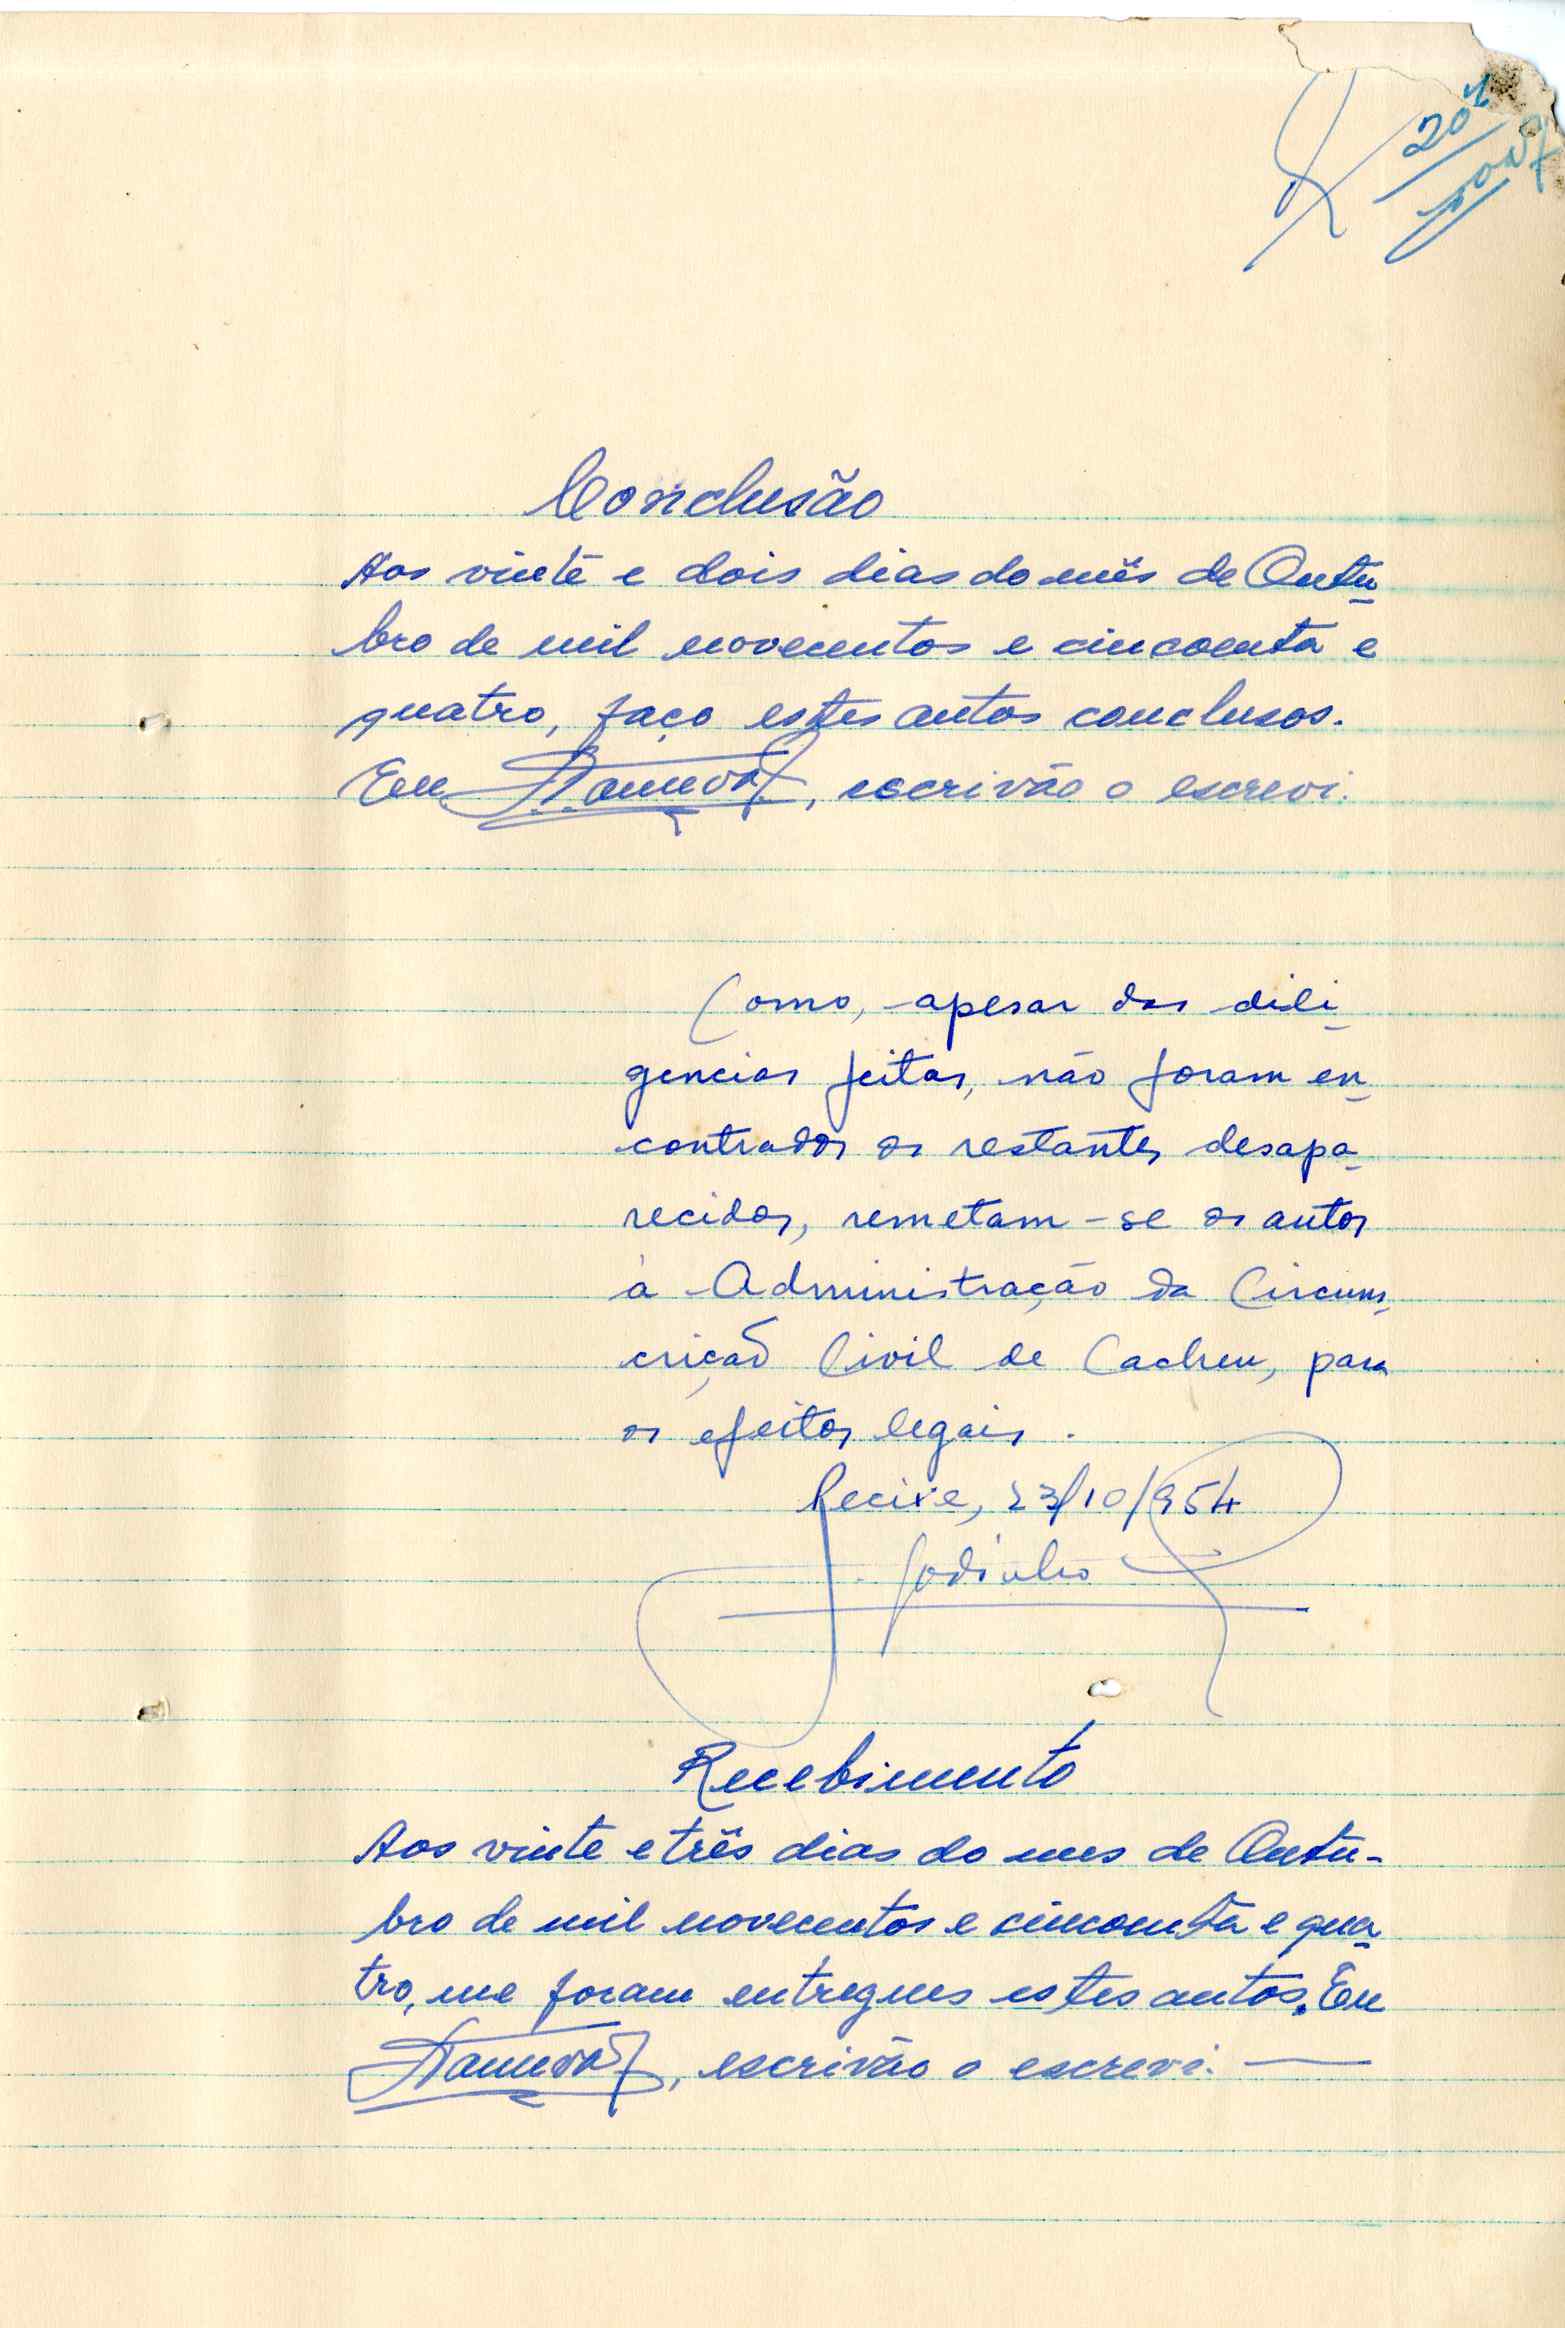 20
Conclusão
Aos vinte e dois dias do mês de Outu-
bro de mil novecentos e cincoenta e
quatro, faço estes autos conclusos.
Eu, escrivão o escrevi.
Como, apesar das dili-
gencias feitas, não foram en-
contrados os restantes desapa-
recidos, remetam-se os autos
à Administração da Circuns-
crição Civil de Cacheu, para
os efeitos legais.
Pecixe, 23/10/954
Godinho
Recebimento
Aos vinte e três dias do mes de Outu-
bro de mil novecentos e cincoenta e qua-
tro, me foram entregues estes autos. Eu
, escrivão o escrevi.